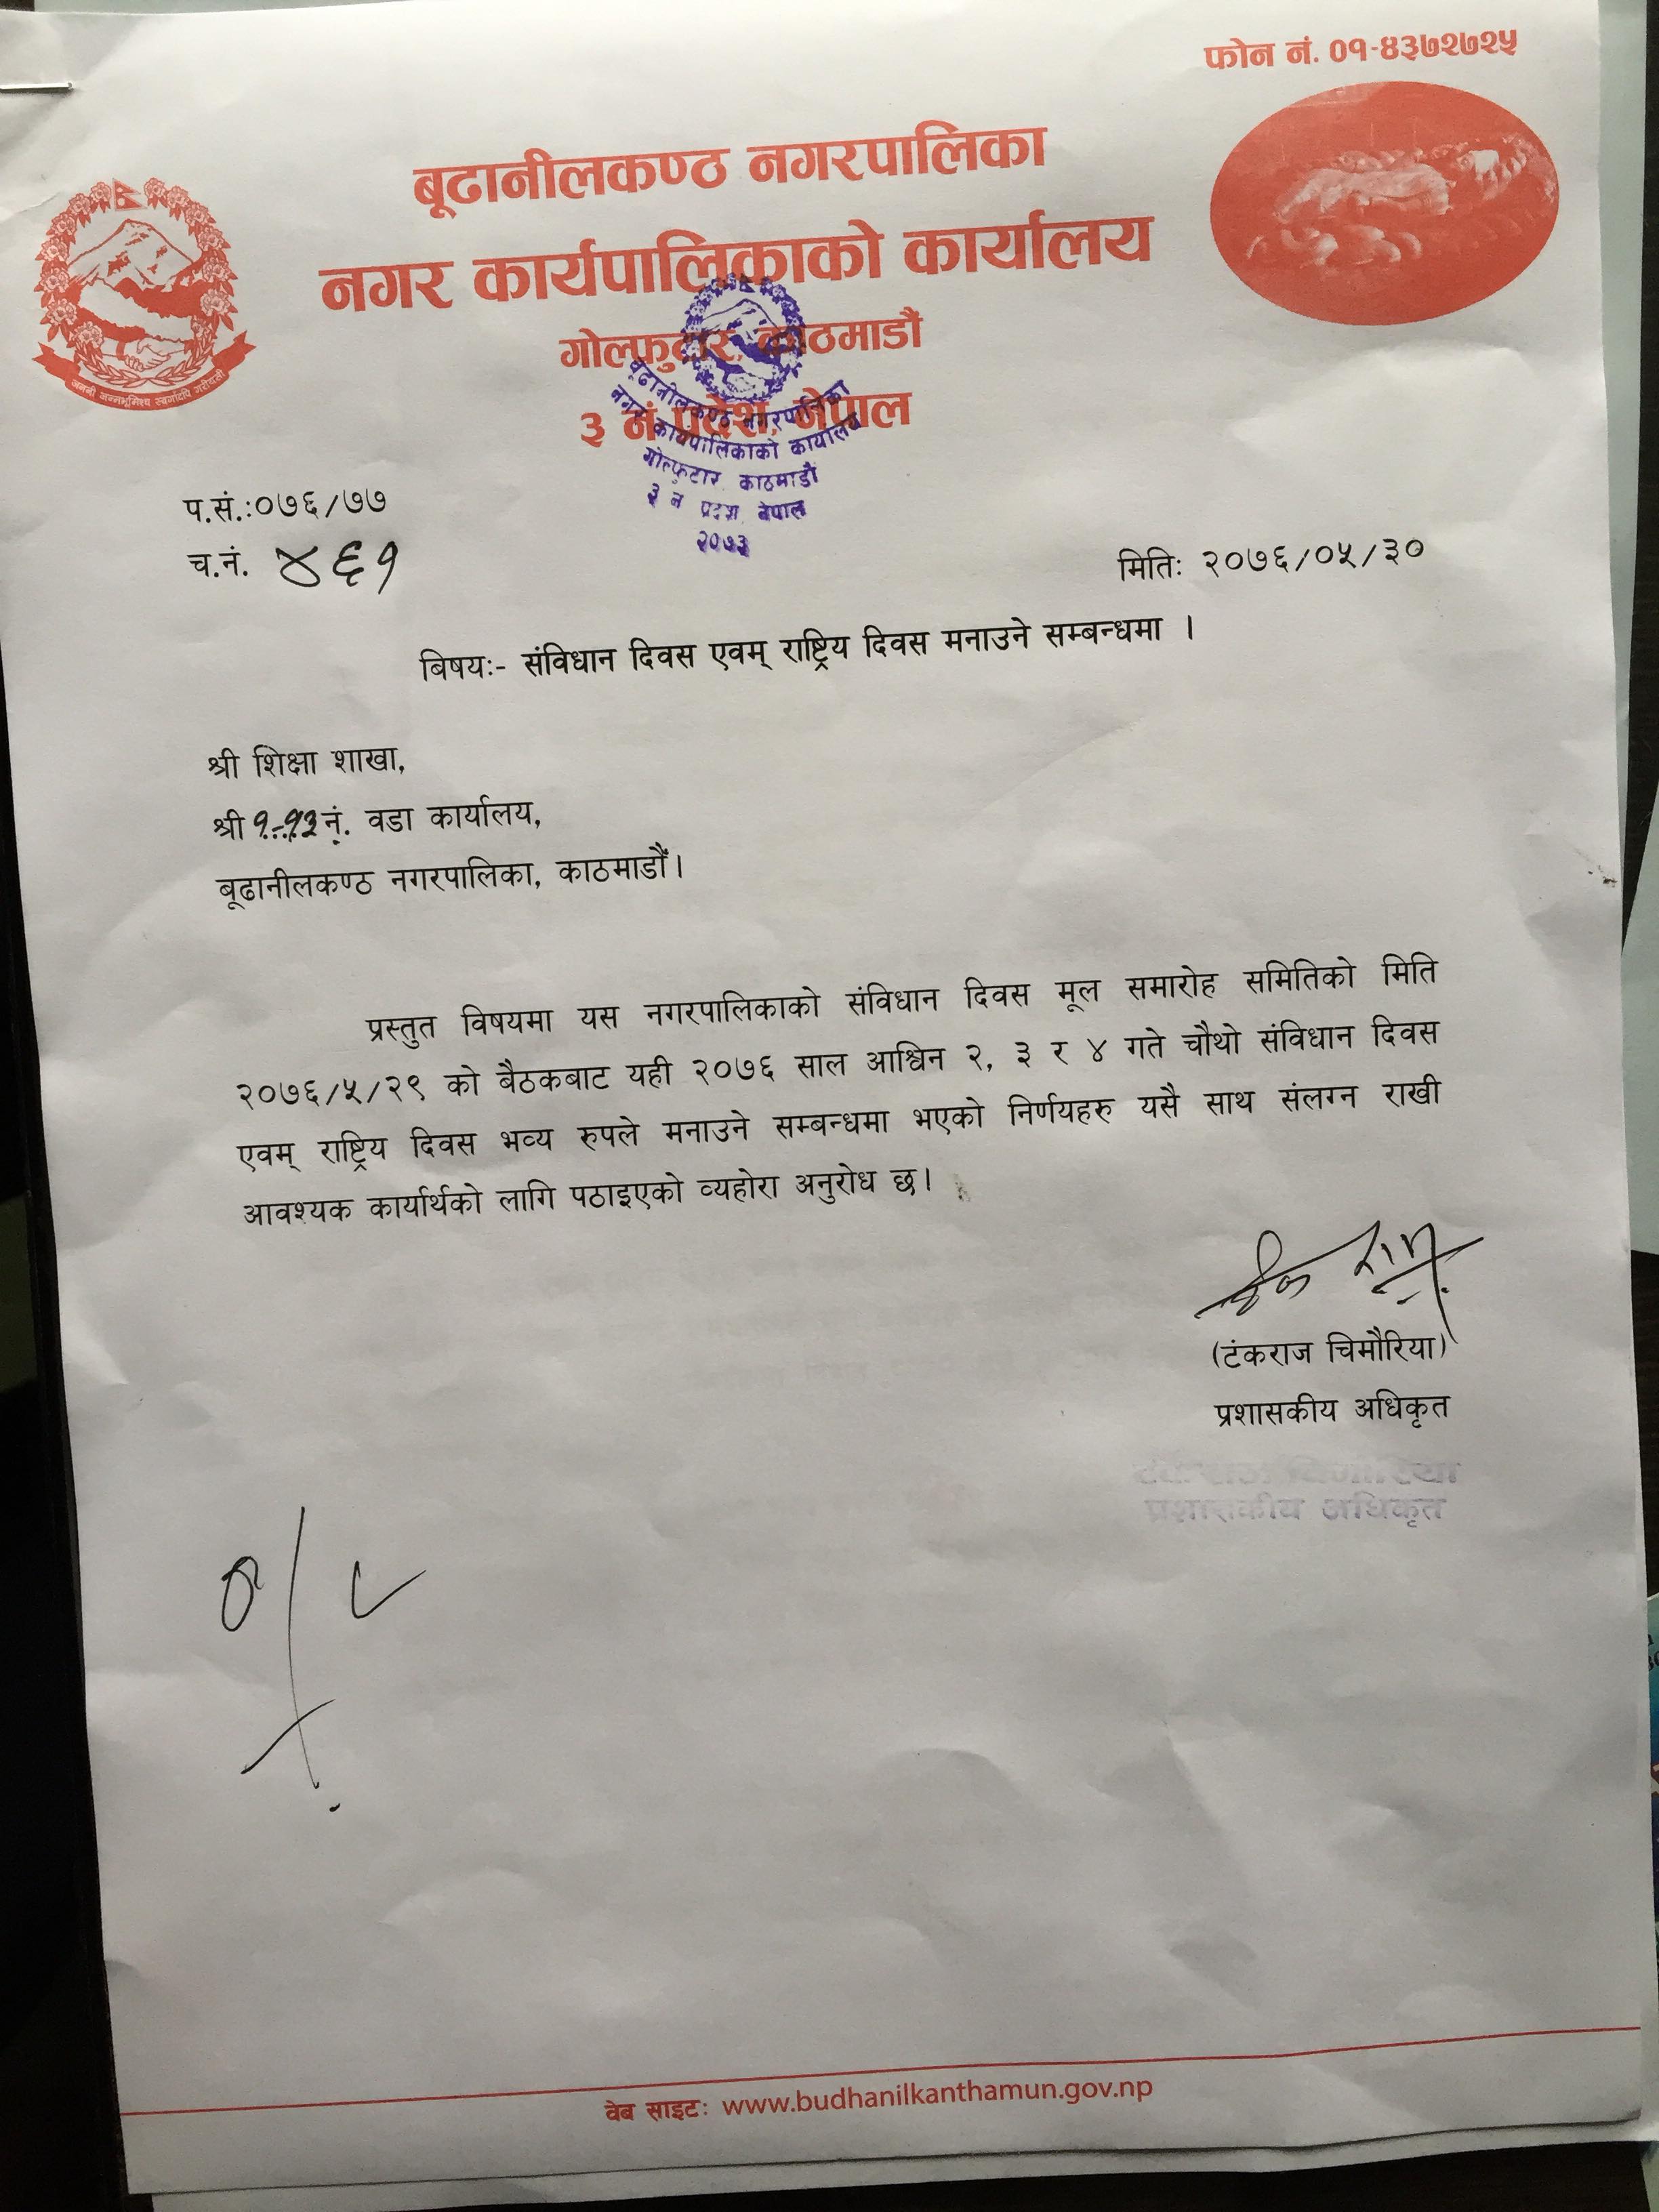 फोन नं. ०१-४३७२७२५
बूढानीलकण्ठ नगरपालिका
नगर कार्यपालिकाको कार्यालय
गोल्फुटार, काठमाडौं
३ नं प्रदेश, नेपाल
जननी जन्मभूमिश्च स्वर्गादपि गरीयसी
बूढानीलकण्ठ नगरपालिका
नगर कार्यपालिकाको कार्यालय
गोल्फुटार, काठमाडौं
३ नं प्रदेश, नेपाल
२०७३
प.सं.:०७६/७७
च.नं. ४६१
मितिः २०७६/०५/३०
बिषयः- संविधान दिवस एवम् राष्ट्रिय दिवस मनाउने सम्बन्धमा ।
श्री शिक्षा शाखा,
श्री १-१३ नं. वडा कार्यालय,
बूढानीलकण्ठ नगरपालिका, काठमाडौँ।
प्रस्तुत विषयमा यस नगरपालिकाको संविधान दिवस मूल समारोह समितिको मिति
२०७६/५/२९ को बैठकबाट यही २०७६ साल आश्विन २, ३ र ४ गते चौथो संविधान दिवस
एवम् राष्ट्रिय दिवस भव्य रुपले मनाउने सम्बन्धमा भएको निर्णयहरु यसै साथ संलग्न राखी
आवश्यक कार्यार्थको लागि पठाइएको व्यहोरा अनुरोध छ।
(टंकराज चिमौरिया)
प्रशासकीय अधिकृत
प्रशासकीय अधिकृत
वेब साइटः www.budhanilkanthamun.gov.np